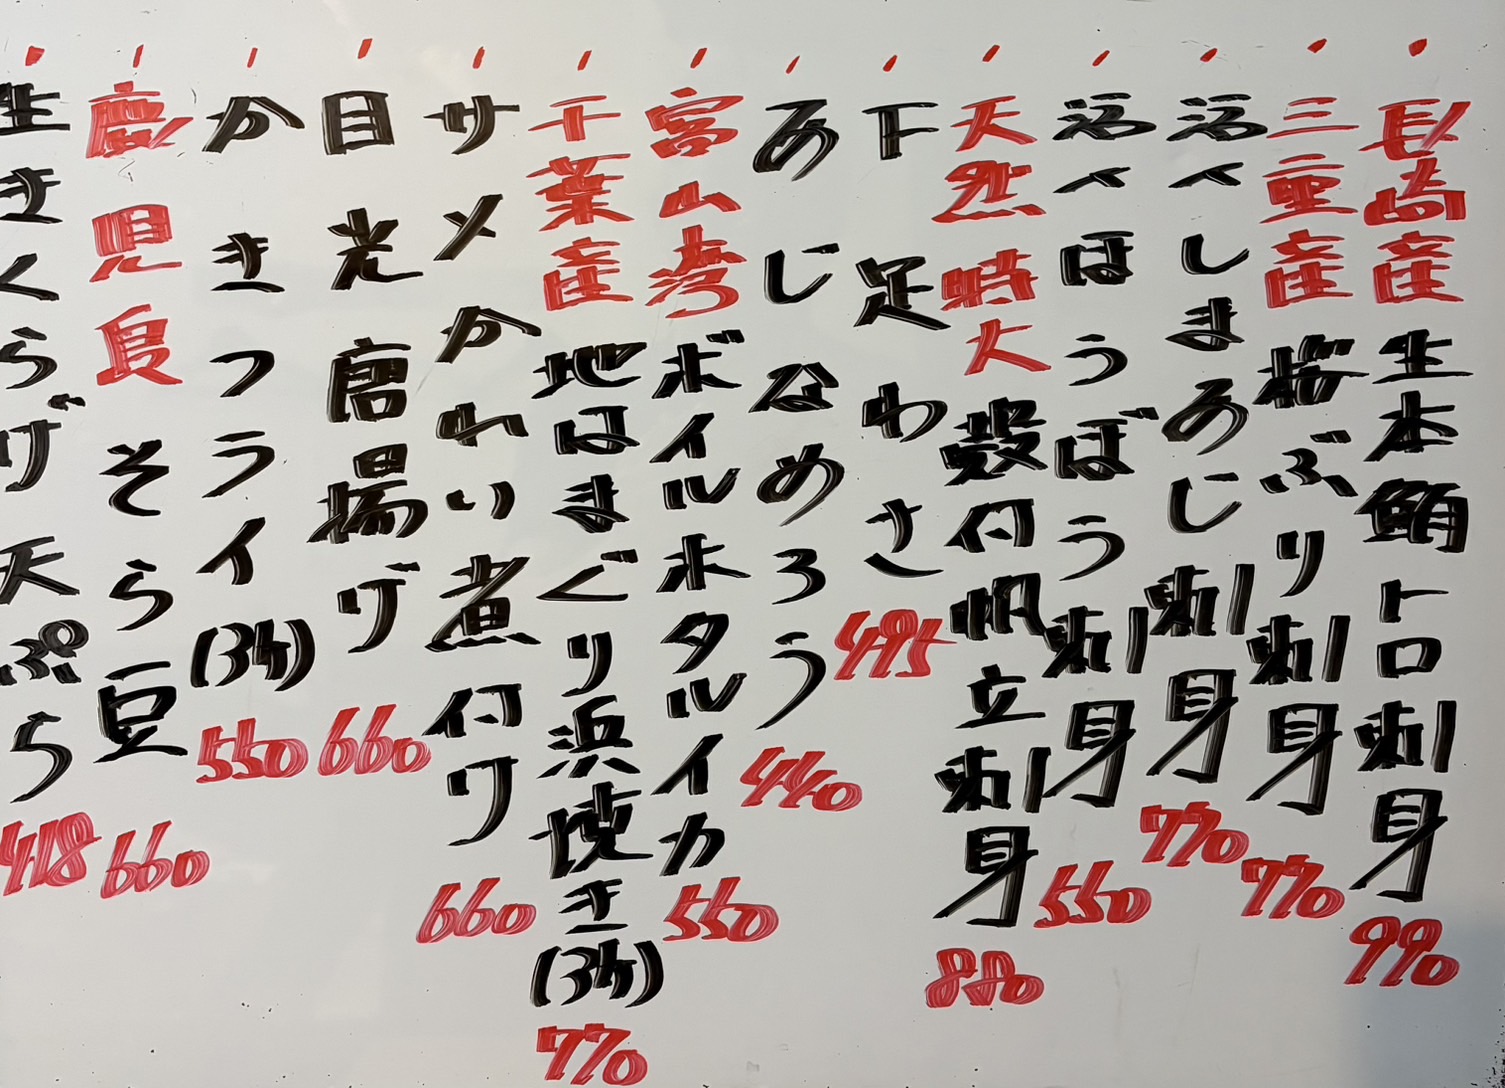 長崎産生本鮪トロ刺身990
三重産桜ぶり刺身770
活〆しまあじ刺身770
活〆ほうぼう刺身550
天然特大殻付帆立刺身880
下足わさ495
あじなめろう440
富山湾ボイルホタルイカ550
千葉産地はまぐり浜焼き(3ケ)770
サメかれい煮付け660
目光唐揚げ660
かきフライ(3ケ)550
鹿児島そら豆660
生きくらげ天ぷら418